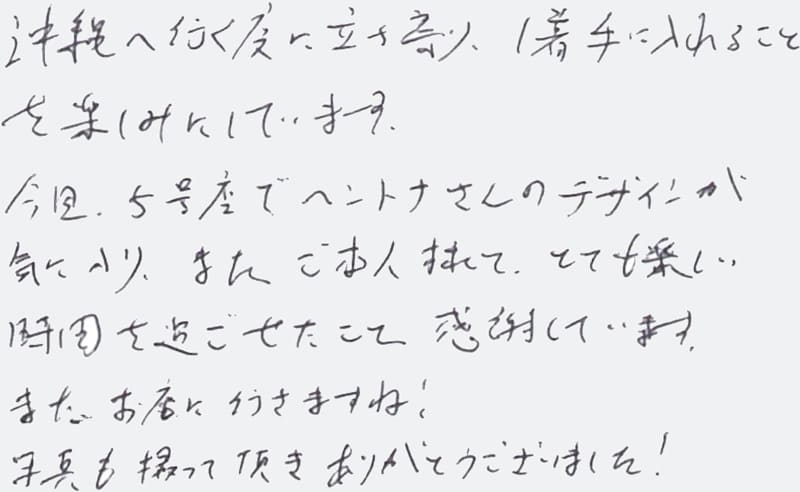 沖縄へ行く度に立ち寄り、1着手に入れること
を楽しみにしています。
今回、5号店でヘントナさんのデザインが
気に入り、また ご本人まで、とても楽しい
時間を過ごせたこと 感謝しています。
また、お店に行きますね！
写真も撮って頂きありがとうございました！